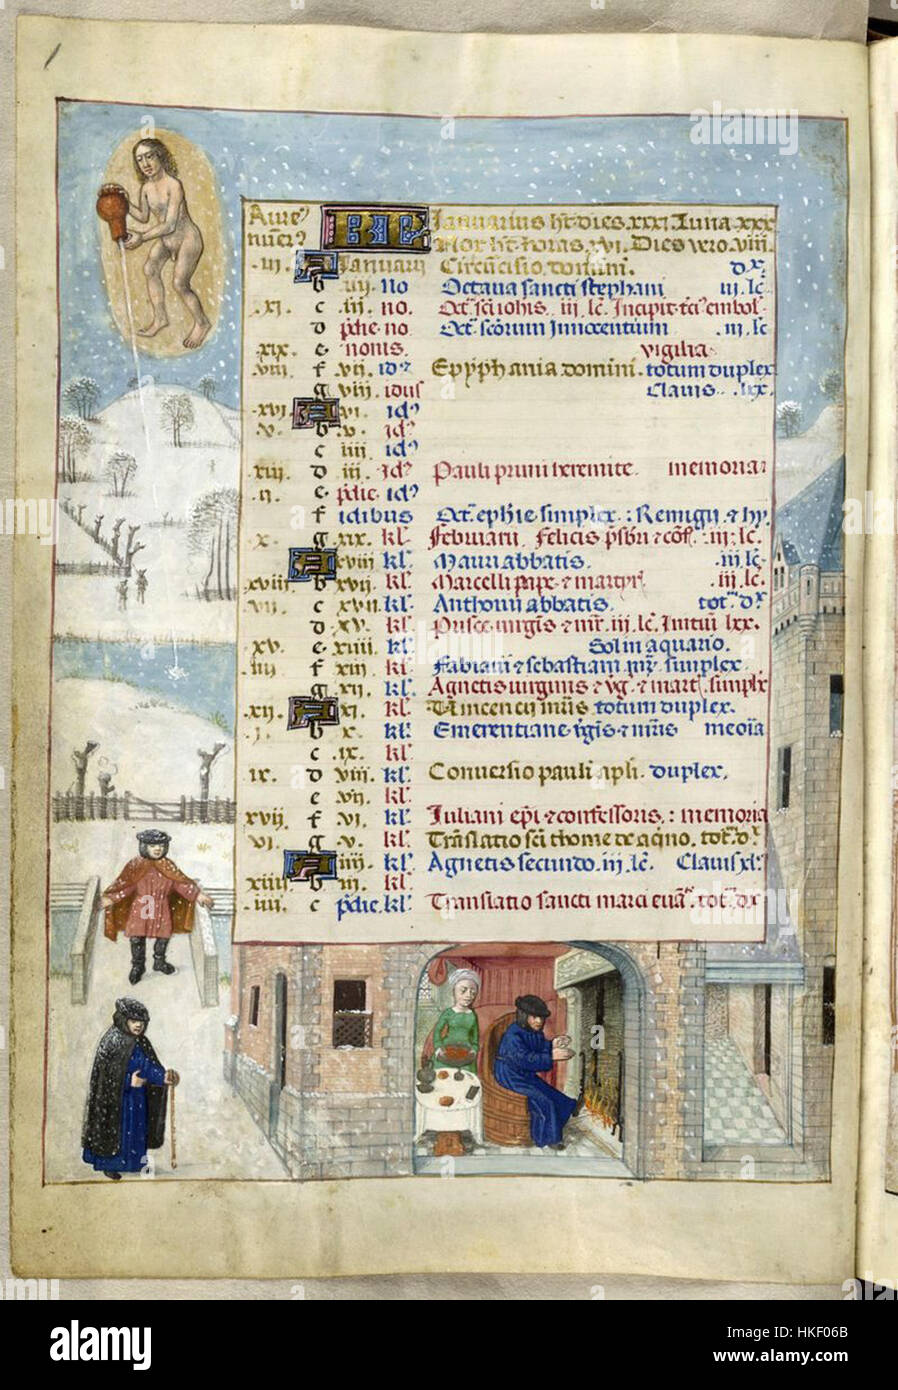 1
Januarius ht dies xxxi luna xxx
Nox ht horas xvi. Dies vero viii.
iii. A Januarii Circūcisio domini. dx
b iiii no Octava sancti stephani iii lc
xi. c iii. no. Oct sci iohis iii lc Incipit
d pdie no Oct scōrum Innocentium iii. lc
xix e nonis vigilia
viii f vii. id Epyphania domini. totum duplex
g viii idus Clavis lxx.
xvi A vi id
v. b v. id
c iiii id
xiii d iii. id Pauli primi heremite memoria
ii. e pdie id
f idibus Oct ephie simplex Remigii & hy
x. g xix. kl februarii felicis psbri & cōf iii. lc.
A xviii kl. Mauri abbatis. iii lc
xviii b xvii. kl Marcelli pape & martyr iii. lc.
vii. c xvii. kl. Anthonii abbatis. tot dx
d xv. kl Prisce virgis & mr iii lc Initiū lxx.
xv. e xiiii kl. Sol in aquario.
iiii f xiii kl. Fabiani & sebastiani mr simplex
g xii. kl. Agnetis virginis & mart simplx
xii. A xi. kl. totum duplex.
i. b x. kl. Emerentiane vgis & mris
c ix. kl.
ix. d viii. kl. Conversio pauli apli. duplex.
e vii. kl.
xvii f vi. kl. Iuliani epi & confessoris : memoria
vi. g v. kl. Trāslatio sci thome de aqno. tot dx
A iiii. kl. Agnetis secundo iii lc. Clavis
xiiii b iii. kl.
iiii. c pdie kl. Translatio sancti marci eva tot dx
alamy
a
alamy
Image ID: HKF06B
www.alamy.com